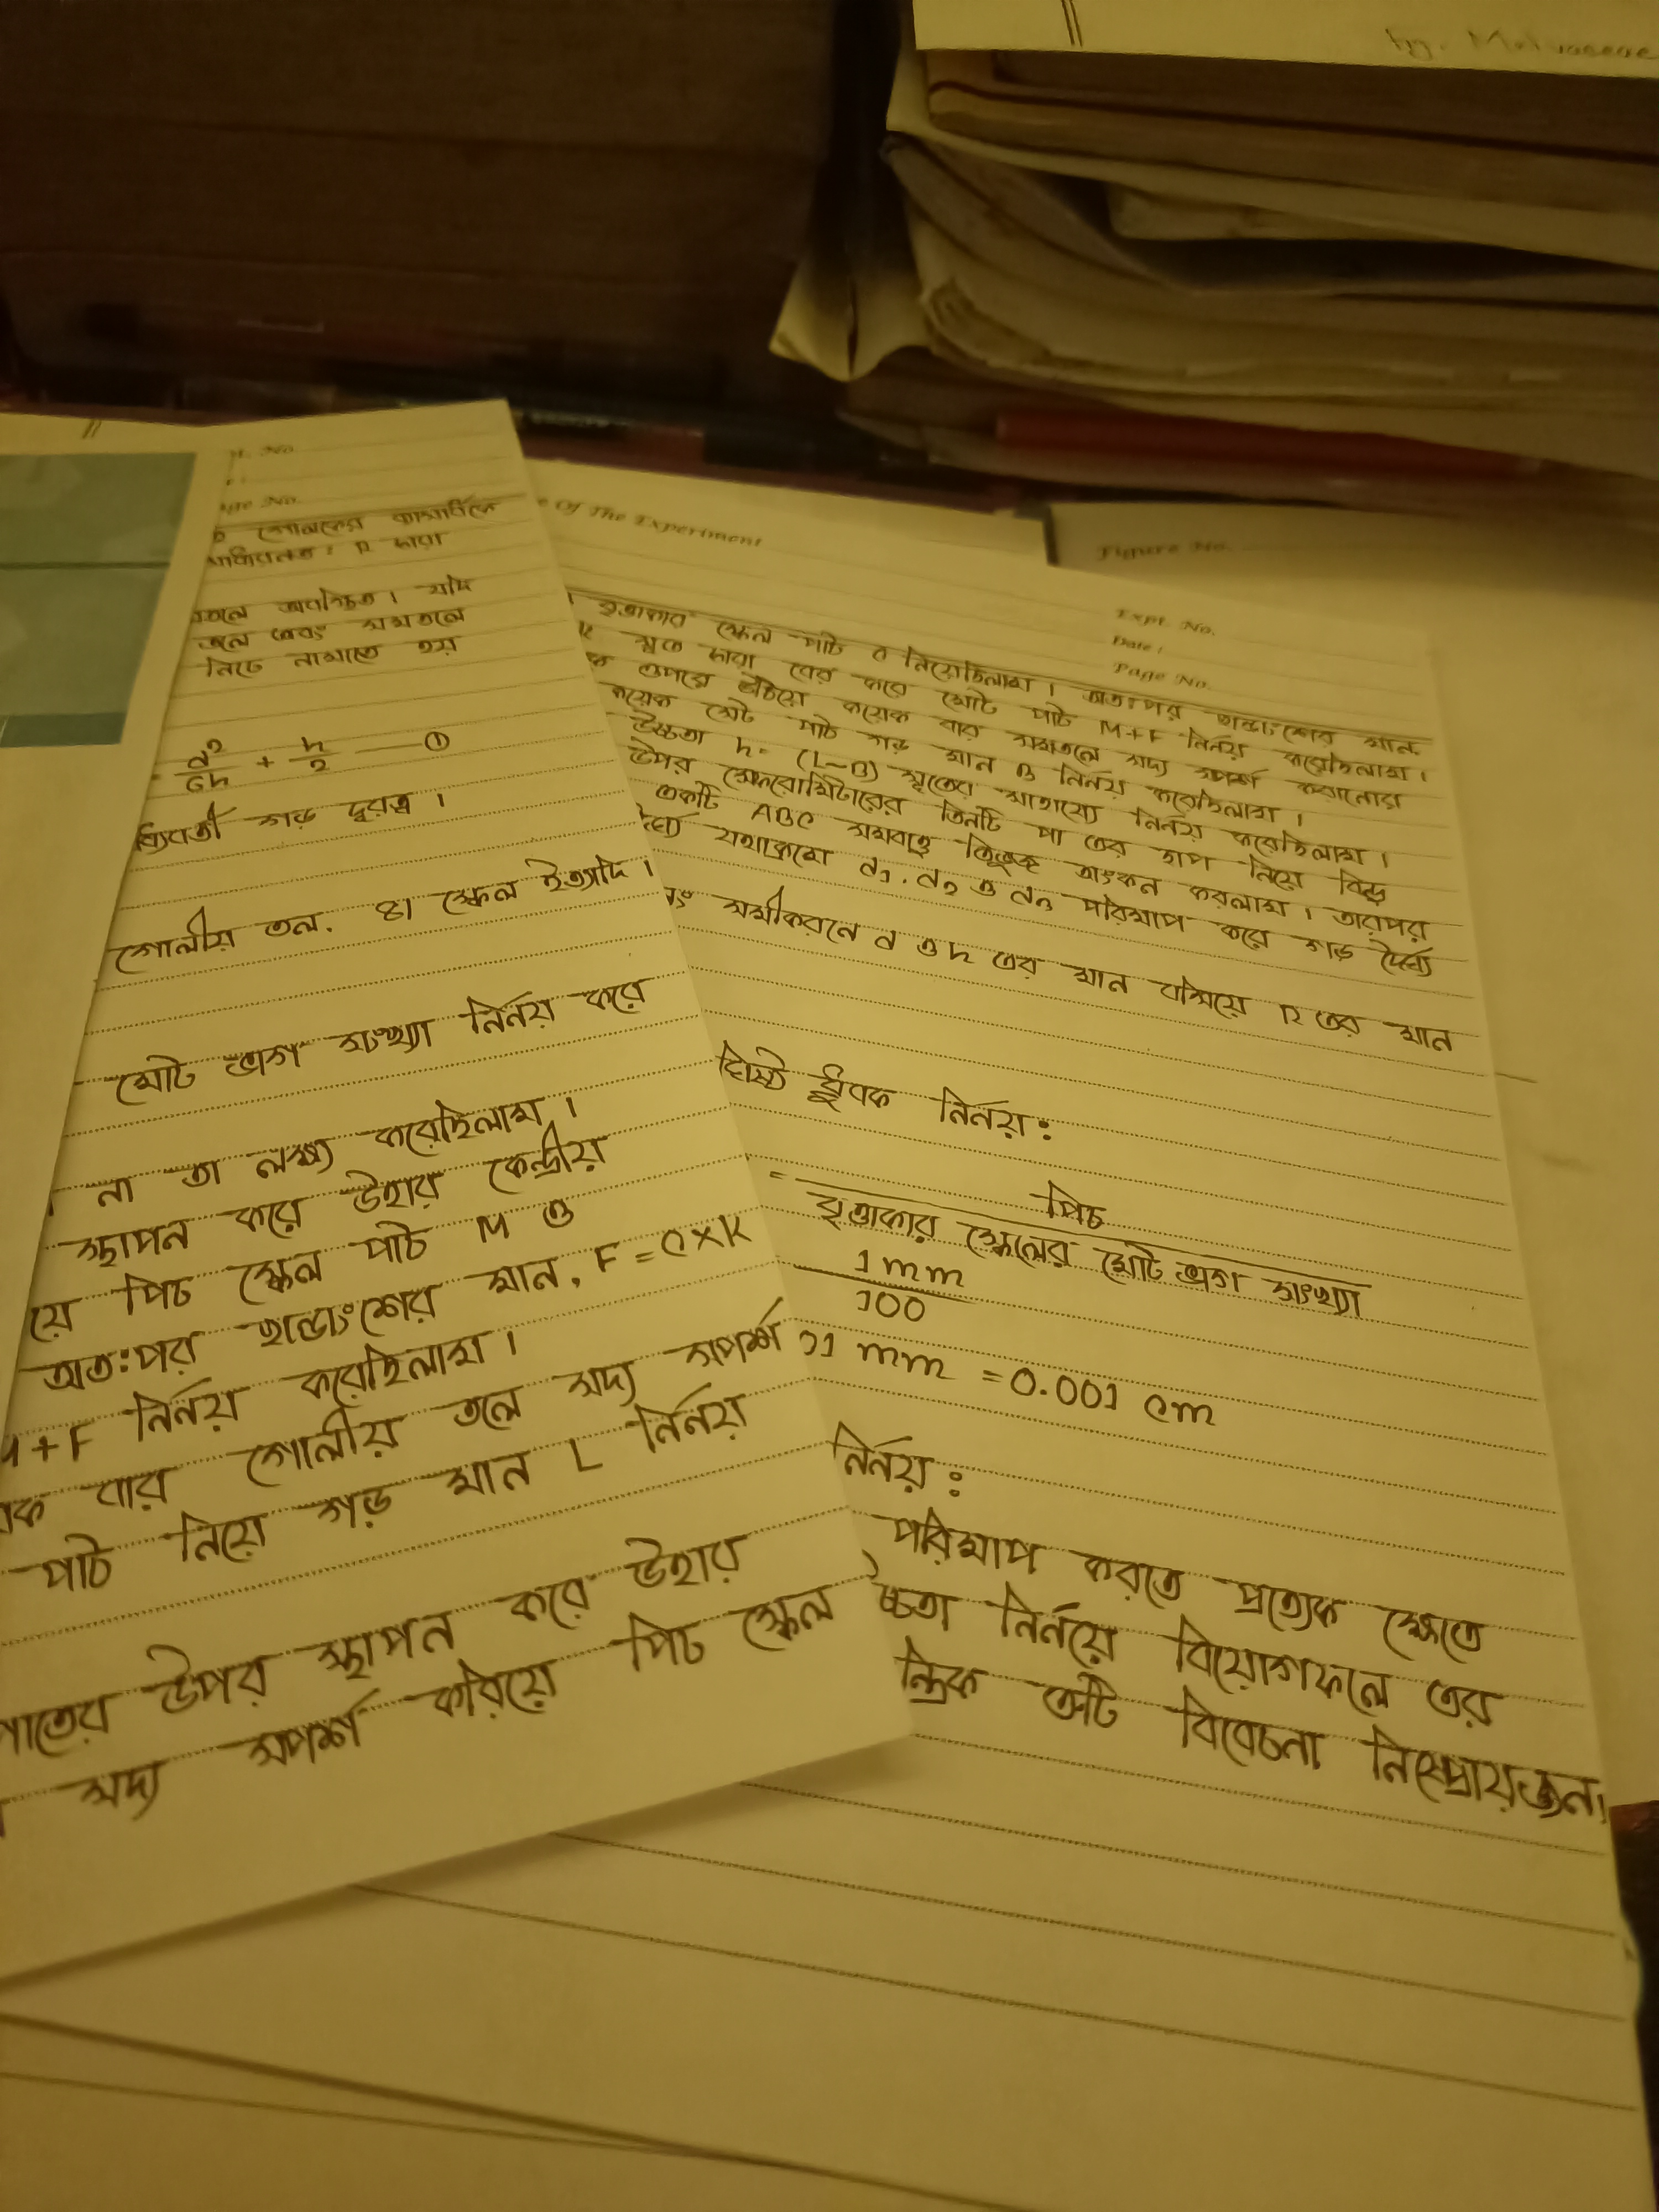 Expt. No.
Page No.
গোলকের ব্যাসার্ধকে
R দ্বারা
তলে অবস্থিত। যদি
তলে এবং সমতলে
নিচে নামাতে হয়
d²/6h + h/2 —— ①
গড় দূরত্ব।
গোলীয় তল, ঃ। স্কেল ইত্যাদি।
মোট ভাগ সংখ্যা নির্নয় করে
না তা লক্ষ্য করেছিলাম।
স্থাপন করে উহার কেন্দ্রীয়
য়ে পিচ স্কেল পাঠ M ও
অতঃপর ভগ্নাংশের মান, F = C×K
M+F নির্নয় করেছিলাম।
এক বার গোলীয় তলে সদ্য স্পর্শ
পাঠ নিয়ে গড় মান L নির্নয়
পাতের উপর স্থাপন করে উহার
সদ্য স্পর্শ করিয়ে পিচ স্কেল
e Of The Experiment
Expt. No.
Date :
Page No.
বৃত্তাকার স্কেল পাঠ C নিয়েছিলাম। অতঃপর ভগ্নাংশের মান,
K সূত্র দ্বারা বের করে মোট পাঠ M+F নির্নয় করেছিলাম।
ওপরে উঠিয়ে কয়েক বার সমতলে সদ্য স্পর্শ করানোর
কয়েক মোট পাঠ গড় মান B নির্নয় করেছিলাম।
উচ্চতা h = (L-B) সূত্রের সাহায্যে নির্নয় করেছিলাম।
উপর স্ফেরোমিটারের তিনটি পা এর ছাপ নিয়ে বিন্দু
একটি ABC সমবাহু ত্রিভুজ অংকন করলাম। তারপর
দৈর্ঘ্য যথাক্রমে d₁, d₂ ও d₃ পরিমাপ করে গড় দৈর্ঘ্য
নং সমীকরনে d ও h এর মান বসিয়ে R এর মান
ঘিষ্ট ধ্রুবক নির্নয়:
= পিচ
বৃত্তাকার স্কেলের মোট ভাগ সংখ্যা
1 mm
100
01 mm = 0.001 cm
নির্নয়:
পরিমাপ করতে প্রত্যেক ক্ষেত্রে
চ্চতা নির্নয়ে বিয়োগফলে এর
ন্ত্রিক ত্রুটি বিবেচনা নিষ্প্রয়োজন।
Figure No.
by. Malvaceae